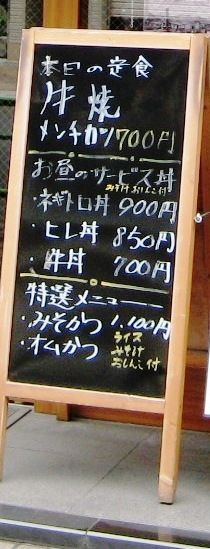 本日の定食
牛焼
メンチカツ700円
お昼のサービス丼
みそ汁おしんこ付
・ネギトロ丼 900円
・ヒレ丼 850円
・牛丼 700円
特選メニュー
・みそかつ 1,100円
・オムかつ
ライス
みそ汁
おしんこ付